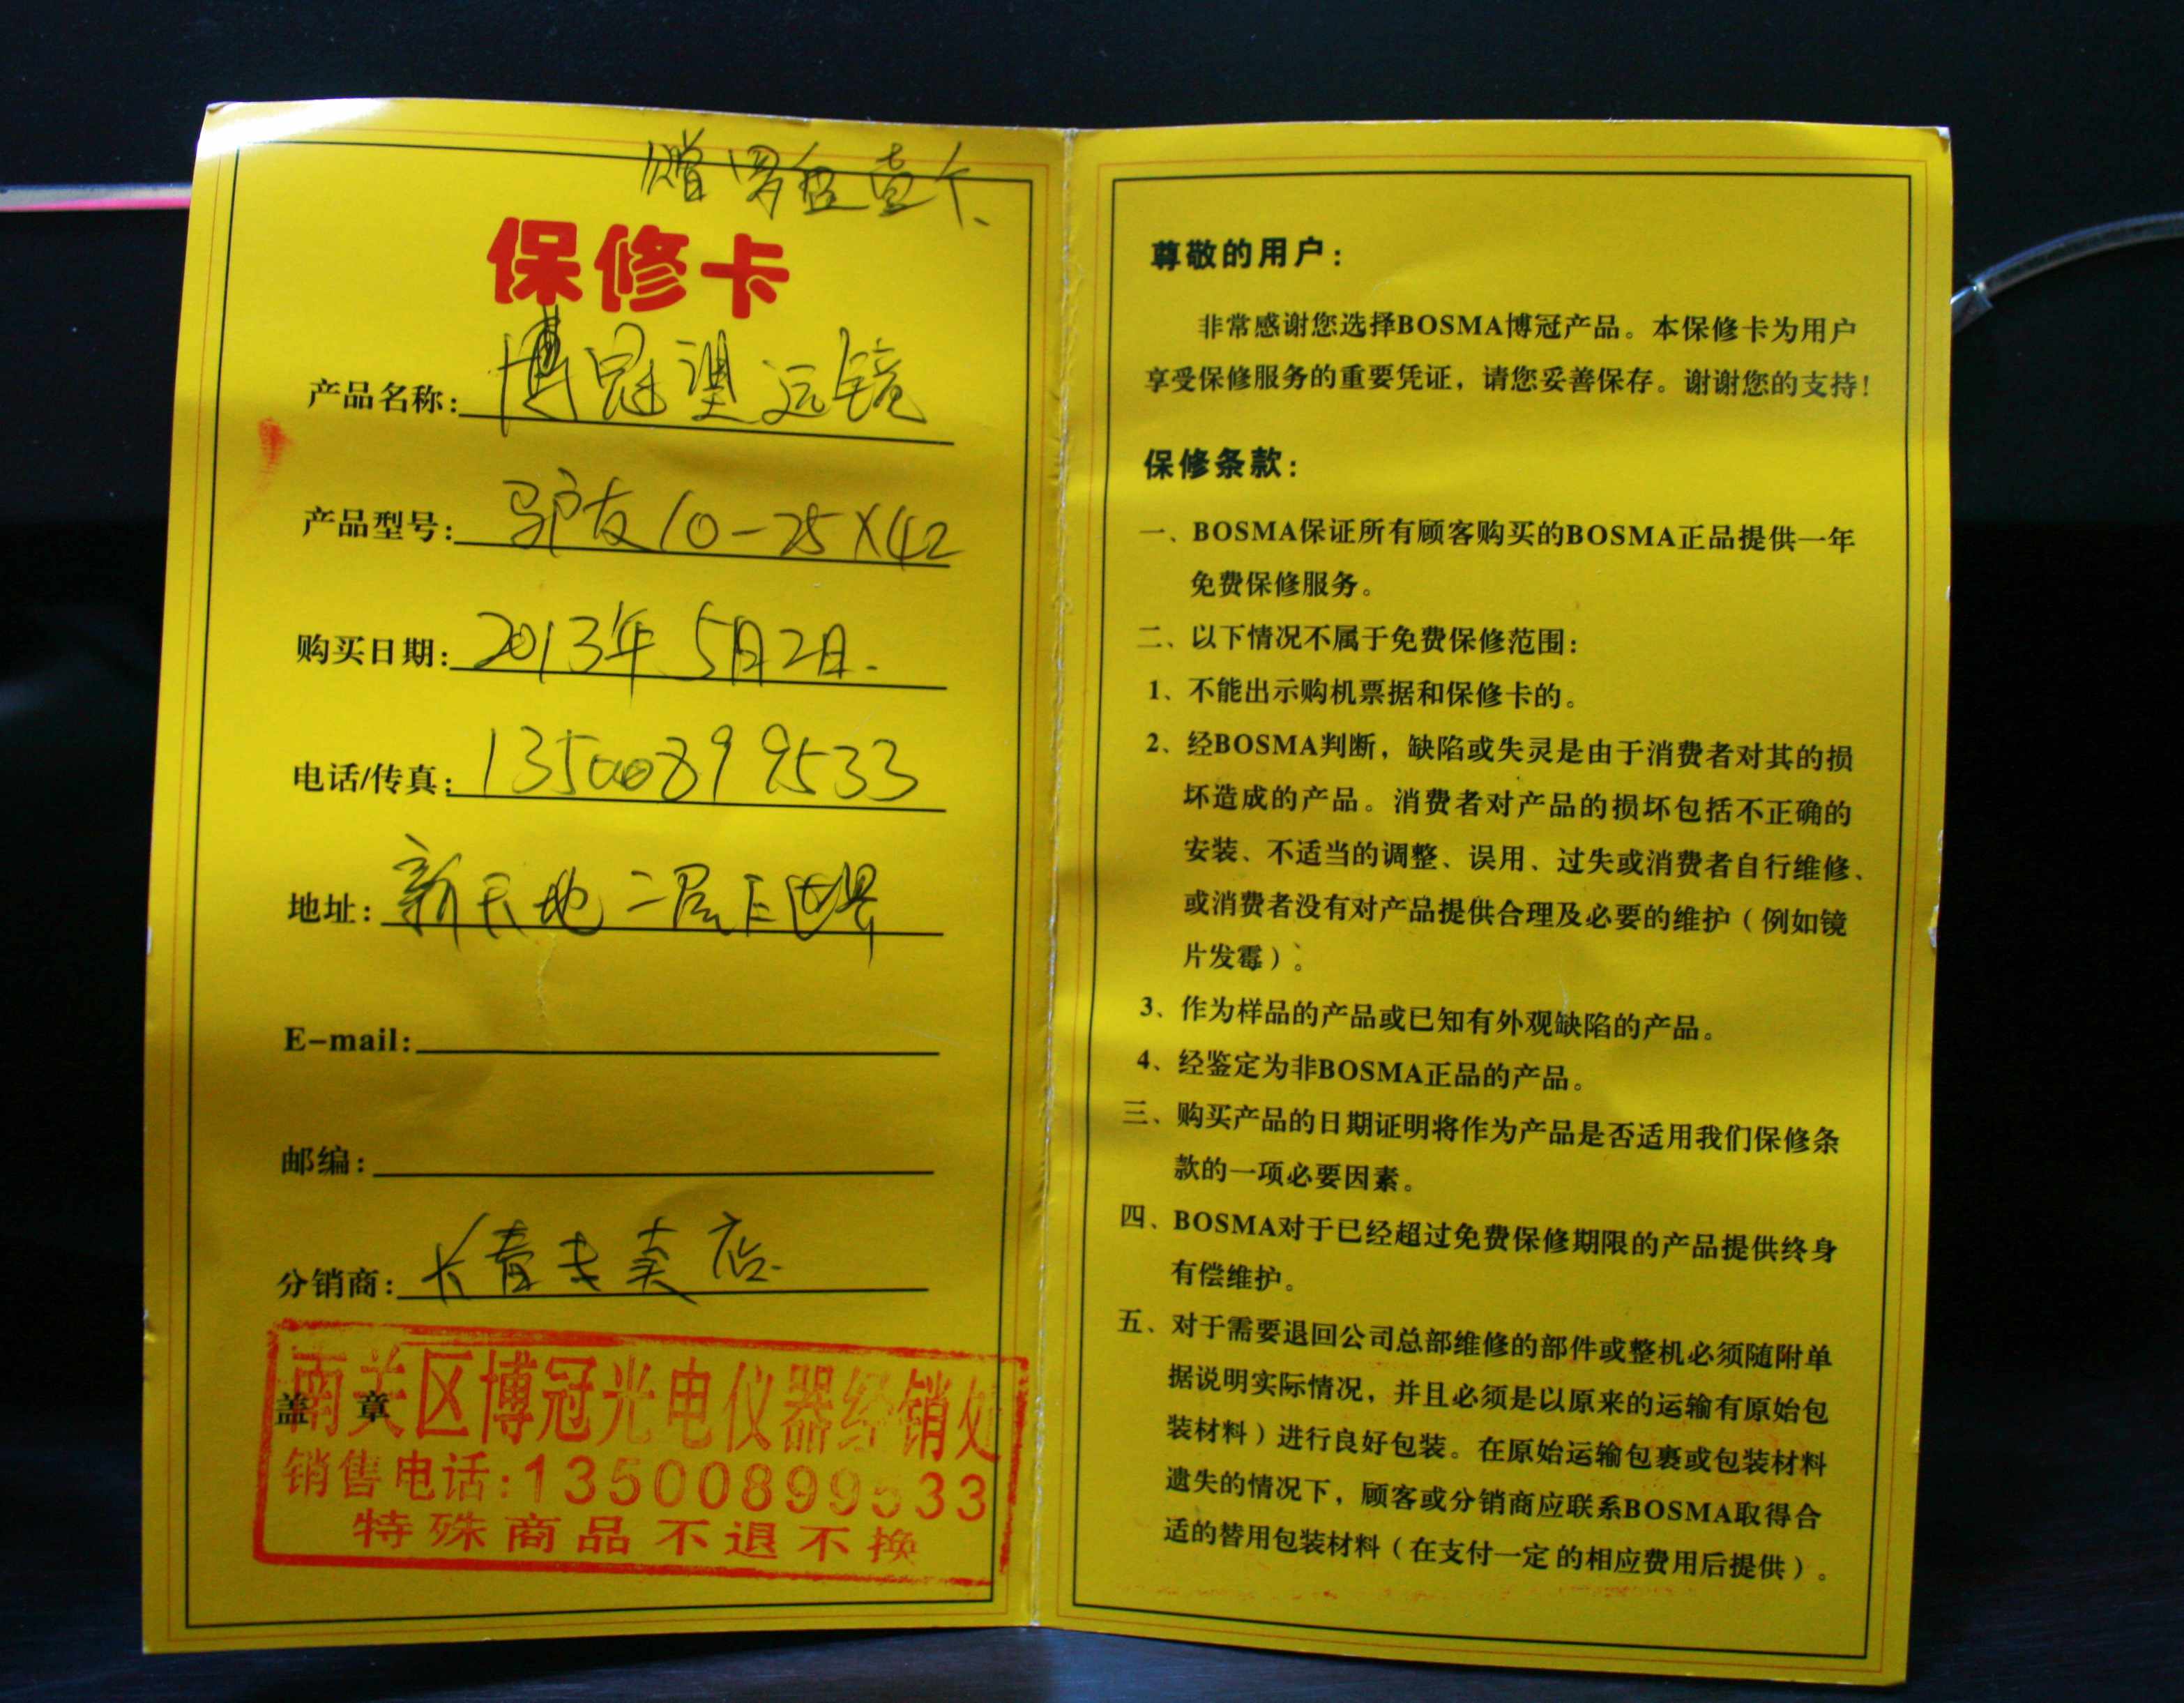 赠罗盘壹个、
保修卡
产品名称: 博冠望远镜
产品型号: 驴友10-25X42
购买日期: 2013年5月2日.
电话/传真: 13500899533
地址: 新天地二层E世界
E-mail:
邮编:
分销商: 长春专卖店.
盖 章
南关区博冠光电仪器经销处
销售电话:13500899533
特殊商品不退不换
尊敬的用户:
非常感谢您选择BOSMA博冠产品。本保修卡为用户
享受保修服务的重要凭证，请您妥善保存。谢谢您的支持!
保修条款:
一、BOSMA保证所有顾客购买的BOSMA正品提供一年
免费保修服务。
二、以下情况不属于免费保修范围:
1、不能出示购机票据和保修卡的。
2、经BOSMA判断，缺陷或失灵是由于消费者对其的损
坏造成的产品。消费者对产品的损坏包括不正确的
安装、不适当的调整、误用、过失或消费者自行维修、
或消费者没有对产品提供合理及必要的维护（例如镜
片发霉）。
3、作为样品的产品或已知有外观缺陷的产品。
4、经鉴定为非BOSMA正品的产品。
三、购买产品的日期证明将作为产品是否适用我们保修条
款的一项必要因素。
四、BOSMA对于已经超过免费保修期限的产品提供终身
有偿维护。
五、对于需要退回公司总部维修的部件或整机必须随附单
据说明实际情况，并且必须是以原来的运输有原始包
装材料）进行良好包装。在原始运输包裹或包装材料
遗失的情况下，顾客或分销商应联系BOSMA取得合
适的替用包装材料（在支付一定的相应费用后提供）。